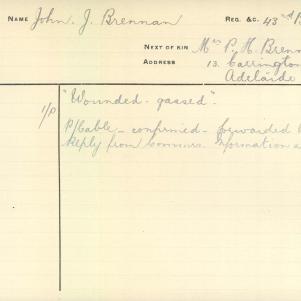 NAME John. J. Brennan REG. &C. 43rd
NEXT OF KIN Mrs P. M. Brenn
ADDRESS 13. Carrington
Adelaide
"Wounded - gassed".
P/Cable - confirmed - forwarded
Reply from Commns. Information